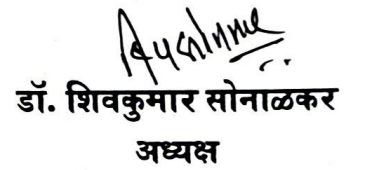 डॉ. शिवकुमार सोनाळकर
अध्यक्ष